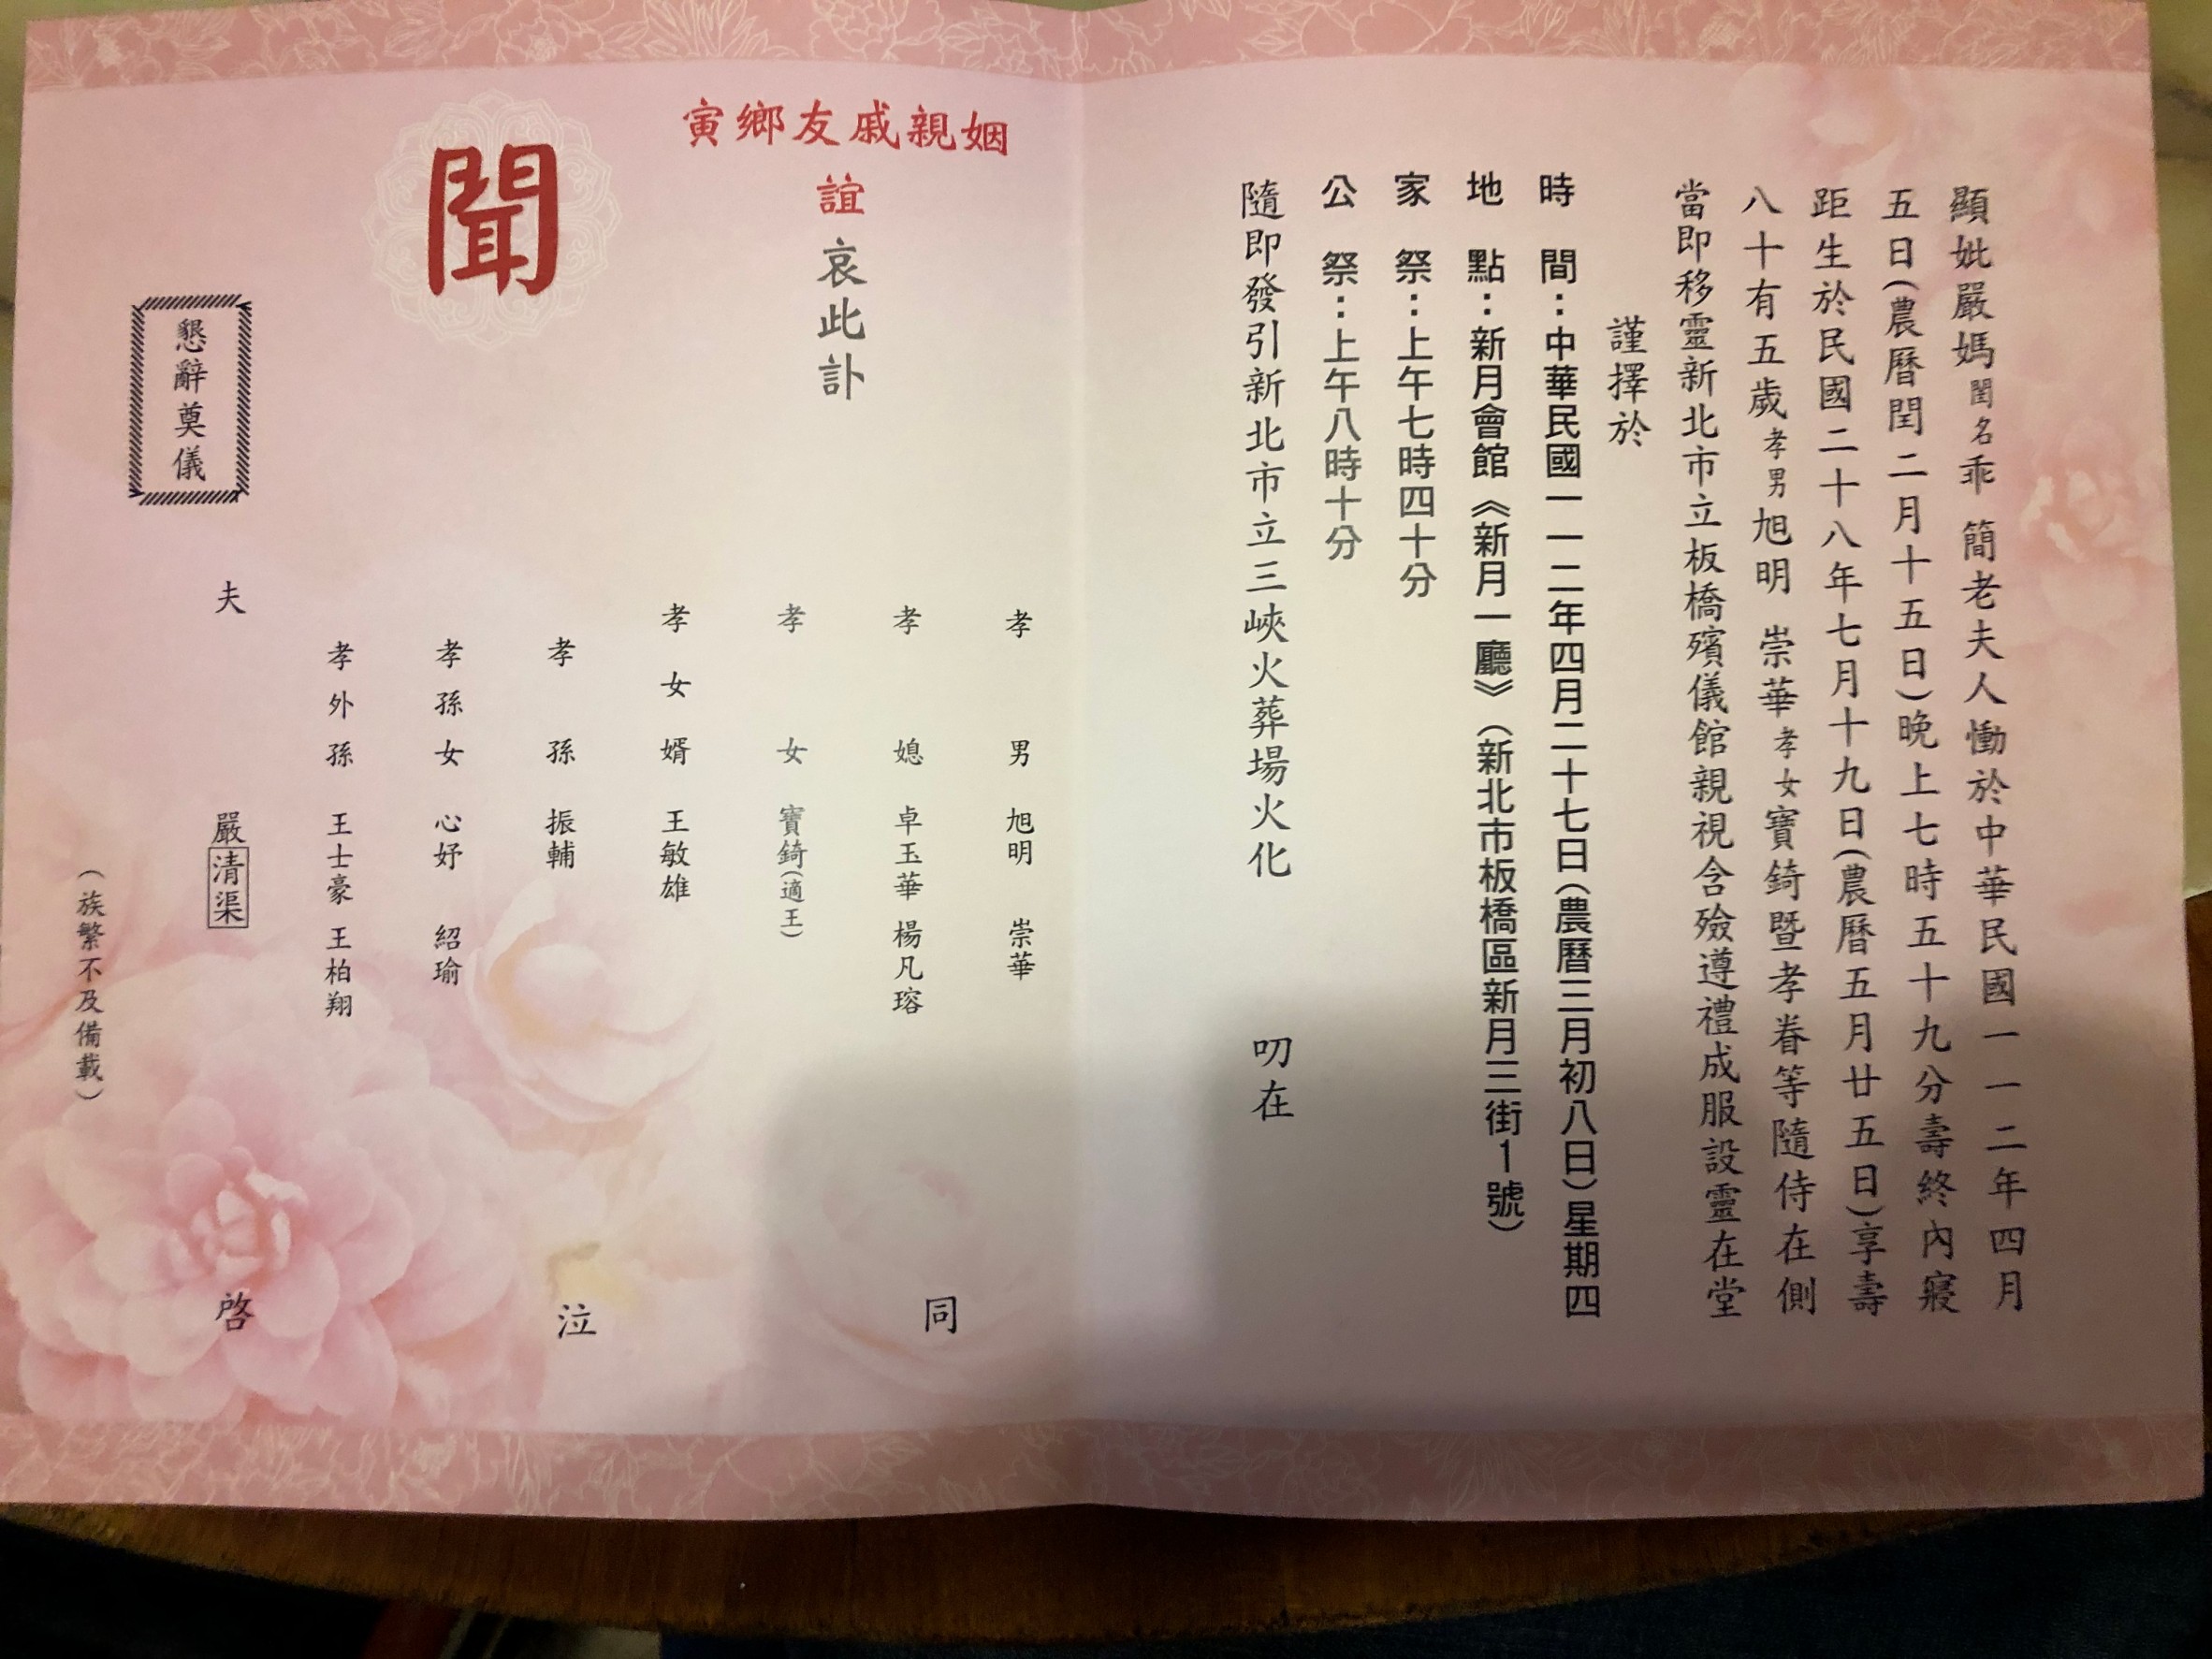 顯妣嚴媽閨名乖 簡老夫人慟於中華民國一一二年四月
五日(農曆閏二月十五日)晚上七時五十九分壽終內寢
距生於民國二十八年七月十九日(農曆五月廿五日)享壽
八十有五歲孝男旭明 崇華孝女寶錡暨孝眷等隨侍在側
當即移靈新北市立板橋殯儀館親視含殮遵禮成服設靈在堂
謹擇於
時 間:中華民國一一二年四月二十七日(農曆三月初八日)星期四
地 點:新月會館《新月一廳》(新北市板橋區新月三街1號)
家 祭:上午七時四十分
公 祭:上午八時十分
隨即發引新北市立三峽火葬場火化 叨在
姻親戚友鄉寅
誼 哀此訃
聞
孝 男 旭明 崇華
孝 媳 卓玉華 楊凡瑢
孝 女 寶錡(適王)
孝女婿 王敏雄
孝 孫 振輔
孝孫女 心妤 紹瑜
孝外孫 王士豪 王柏翔
夫 嚴清渠
同 泣 啓
(族繁不及備載)
懇辭奠儀